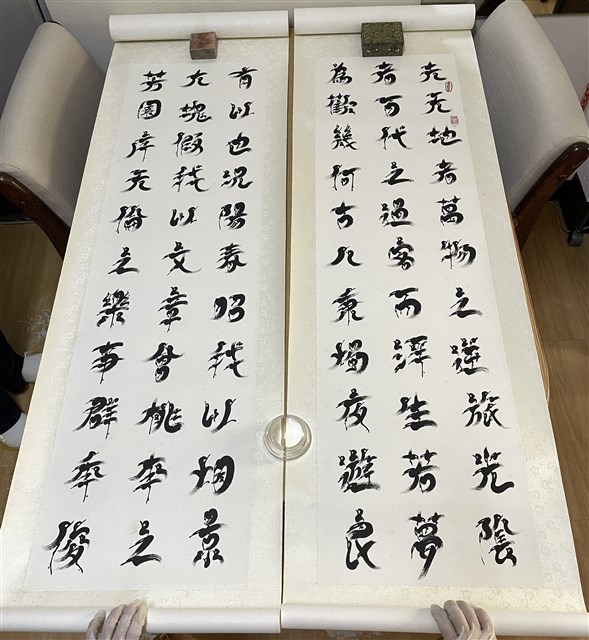 夫天地者萬物之逆旅光陰
者百代之過客而浮生若夢
為歡幾何古人秉燭夜遊良
有以也況陽春召我以烟景
大塊假我以文章會桃李之
芳園序天倫之樂事群季俊